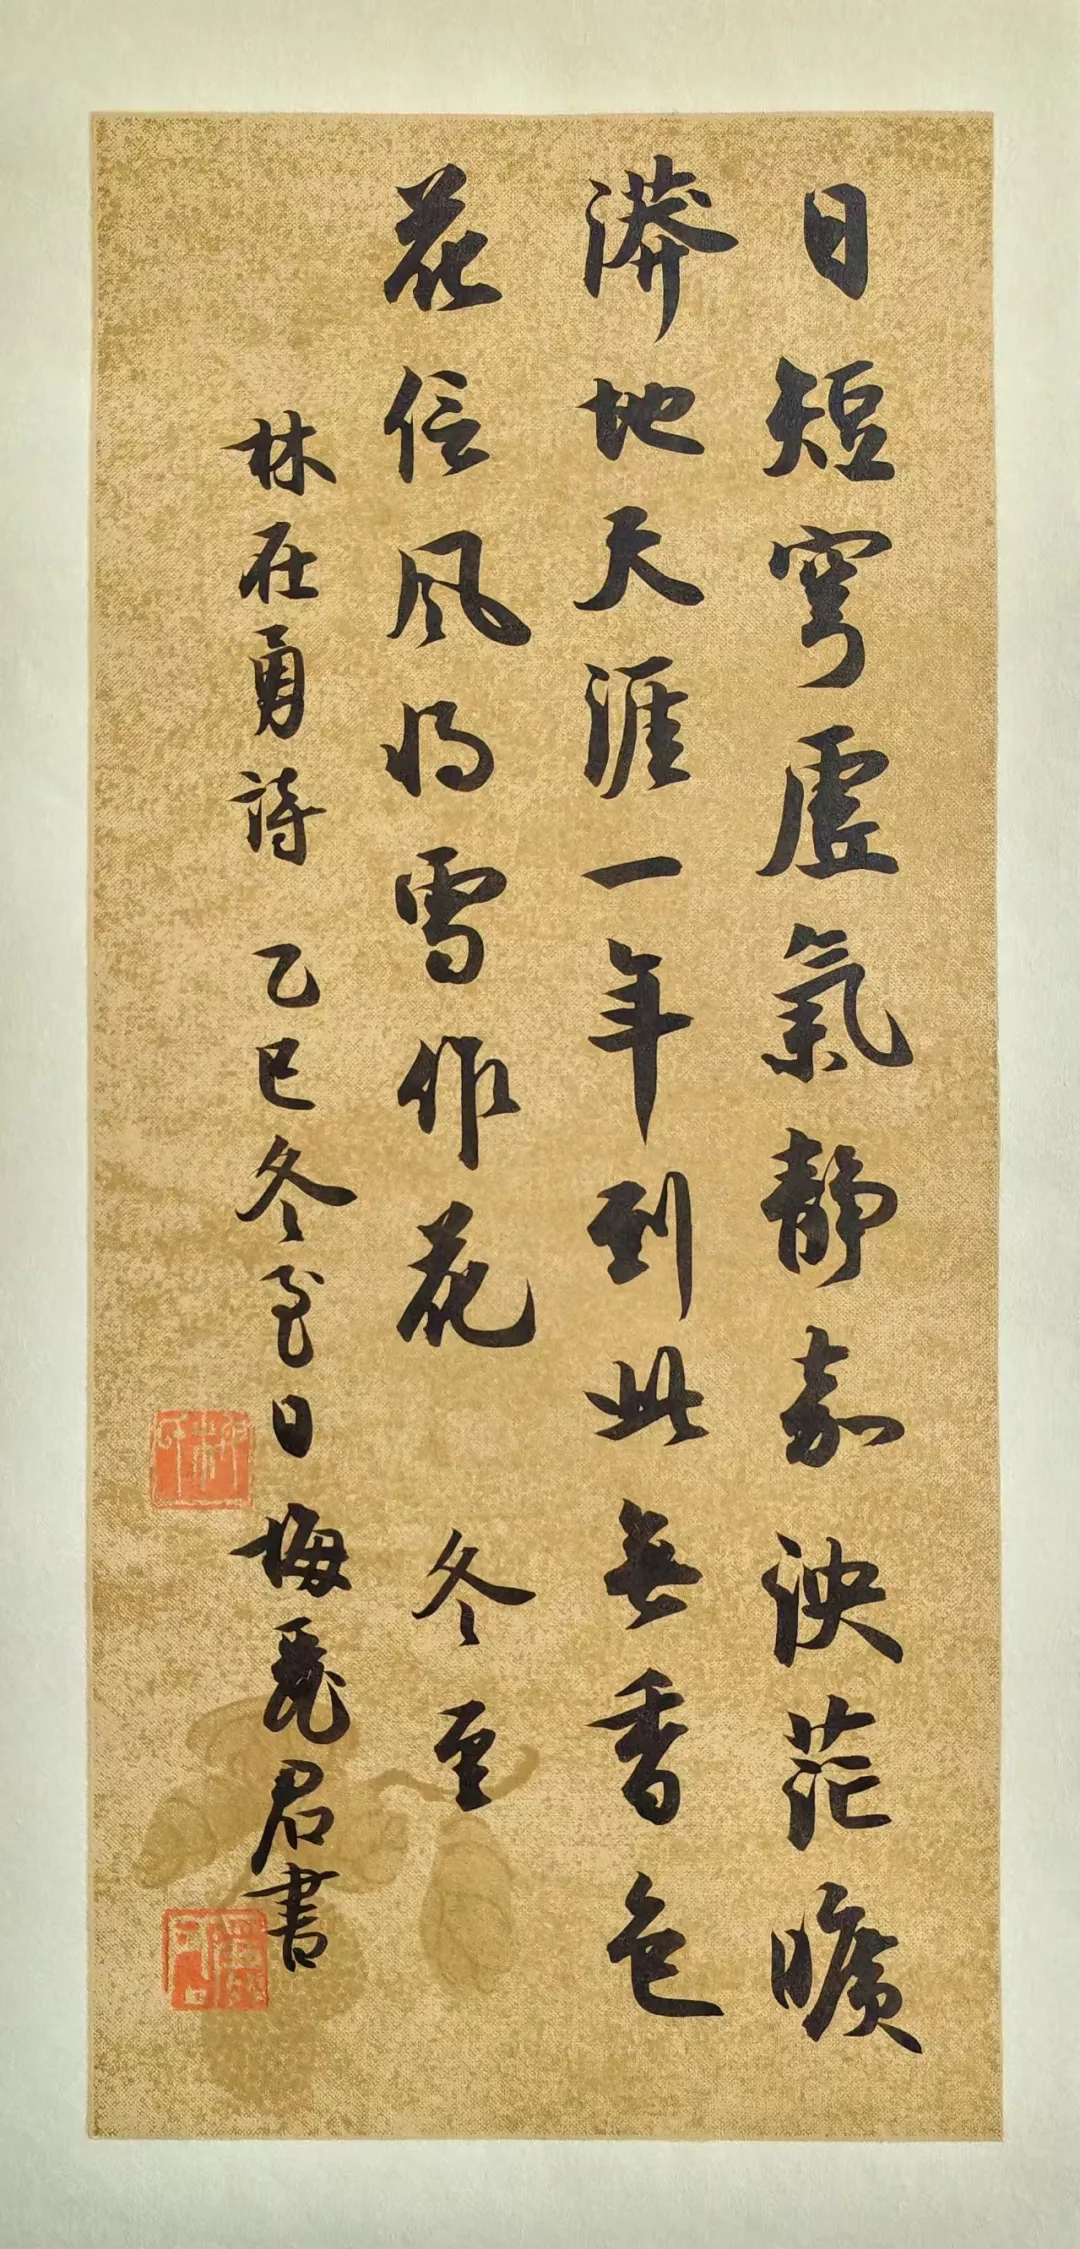 日短穹虚氣靜嘉泱茫曠
漭地天涯一年到此無香色
花信风将雪作花 冬至
林在勇詩 乙巳冬至日 梅麗君書